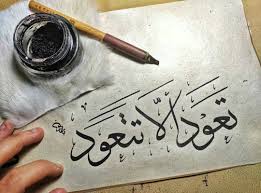 تعود ألا تتعود